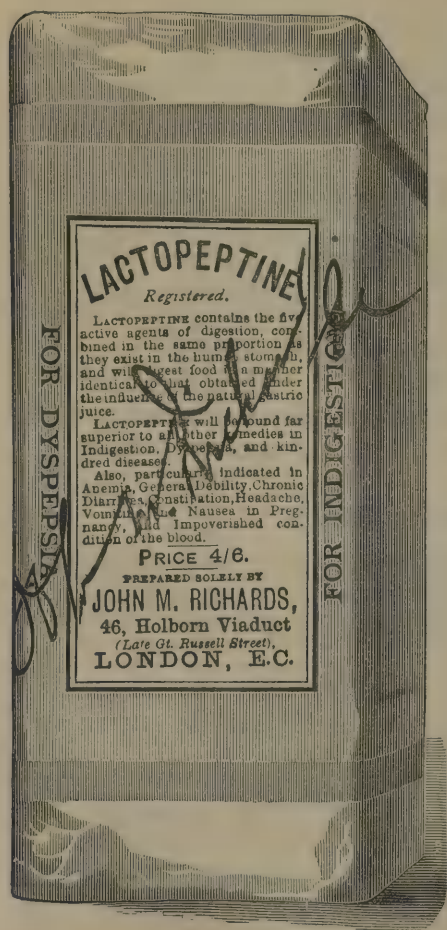 LACTOPEPTINE
Registered.
LACTOPEPTINE contains the five
active agents of digestion, com-
bined in the same proportion as
they exist in the human stomach,
and will digest food in a manner
identical to that obtained under
the influence of the natural gastric
juice.
LACTOPEPTINE will be found far
superior to all other remedies in
Indigestion, Dyspepsia, and kin-
dred diseases.
Also, particularly indicated in
Anemia, General Debility, Chronic
Diarrhœa, Constipation, Headache,
Vomiting and Nausea in Preg-
nancy, and Impoverished con-
dition of the blood.
PRICE 4/6.
PREPARED SOLELY BY
JOHN M. RICHARDS,
46, Holborn Viaduct
(Late Gt. Russell Street),
LONDON, E.C.
FOR DYSPEPSIA
FOR INDIGESTION.
John M Richards